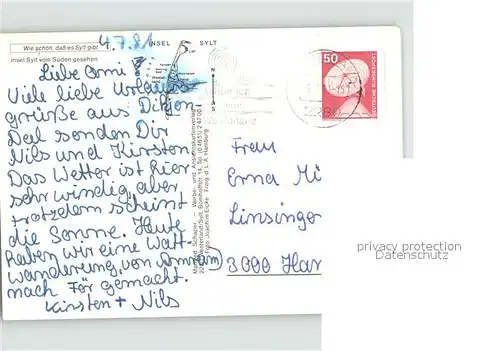 4.7.81
INSEL SYLT
Wie schön, daß es Sylt gibt
Insel Sylt vom Süden gesehen
Liebe Omi!
Viele liebe Urlaubs-
grüße aus
senden Dir
Nils und Kirsten.
Das Wetter ist hier
sehr windig, aber
trotzdem scheint
die Sonne. Heute
haben wir eine Watt-
wanderung von Amrum
nach För gemacht.
Kirsten + Nils
50
DEUTSCHE BUNDESPOST
2280
Frau
Erna Mi
Linsinger
3000 Han
privacy protection
Datenschutz